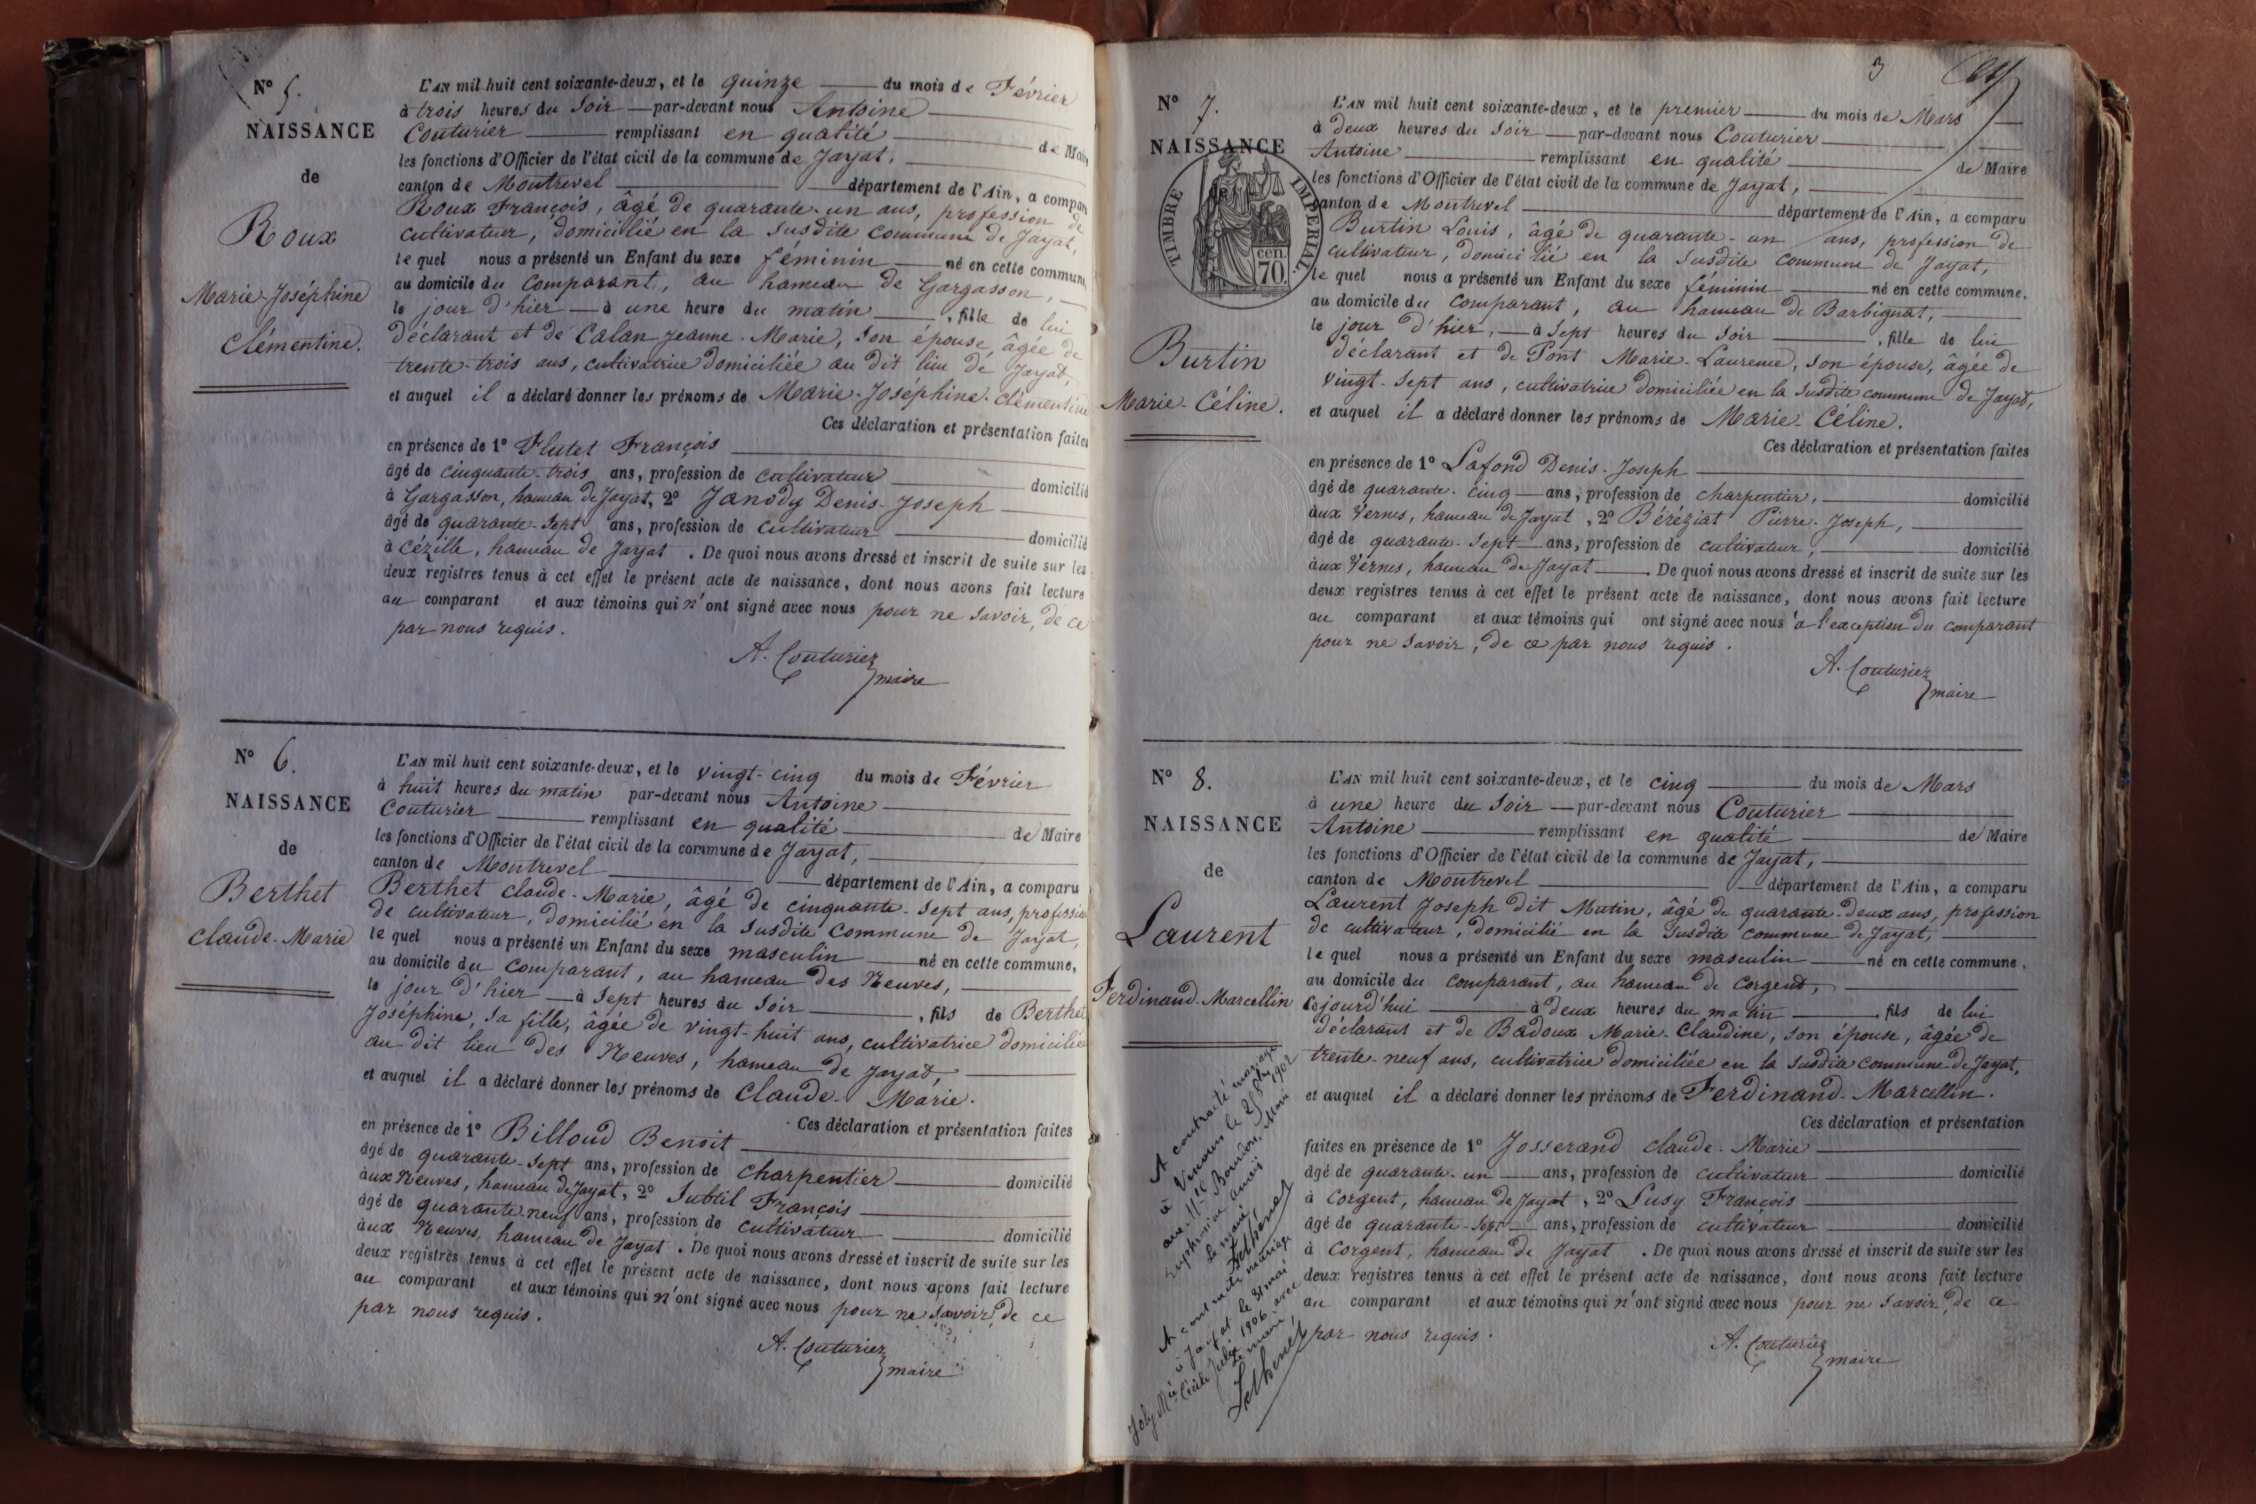 N° 5.
NAISSANCE
de
Roux
Marie-Joséphine
Clémentine.
L'AN mil huit cent soixante-deux, et le quinze du mois de Février
à trois heures du soir par-devant nous Antoine
Couturier remplissant en qualité de Maire
les fonctions d'Officier de l'état civil de la commune de Jayat,
canton de Montrevel département de l'Ain, a comparu
Roux François, âgé de quarante-un ans, profession de
cultivateur, domicilié en la susdite commune de Jayat,
le quel nous a présenté un Enfant du sexe féminin né en cette commune,
au domicile du comparant, au hameau de Gargasson,
le jour d'hier à une heure du matin, fille de lui
déclarant et de Calan Jeanne-Marie, son épouse, âgée de
trente-trois ans, cultivatrice domiciliée au dit lieu de Jayat,
et auquel il a déclaré donner les prénoms de Marie-Joséphine-Clémentine
Ces déclaration et présentation faites
en présence de 1° Flutet François
âgé de cinquante-trois ans, profession de cultivateur domicilié
à Gargasson, hameau de Jayat, 2° Janody Denis-Joseph
âgé de quarante-sept ans, profession de cultivateur domicilié
à Cézille, hameau de Jayat. De quoi nous avons dressé et inscrit de suite sur les
deux registres tenus à cet effet le présent acte de naissance, dont nous avons fait lecture
au comparant et aux témoins qui n'ont signé avec nous pour ne savoir, de ce
par nous requis.
A. Couturier
maire
N° 6.
NAISSANCE
de
Berthet
Claude-Marie
L'AN mil huit cent soixante-deux, et le vingt-cinq du mois de Février
à huit heures du matin par-devant nous Antoine
Couturier remplissant en qualité de Maire
les fonctions d'Officier de l'état civil de la commune de Jayat,
canton de Montrevel département de l'Ain, a comparu
Berthet Claude-Marie, âgé de cinquante-sept ans, profession
de cultivateur, domicilié en la susdite commune de Jayat,
le quel nous a présenté un Enfant du sexe masculin né en cette commune,
au domicile du comparant, au hameau des Neuves,
le jour d'hier à sept heures du soir, fils de Berthet
Joséphine, sa fille, âgée de vingt-huit ans, cultivatrice domiciliée
au dit lieu des Neuves, hameau de Jayat,
et auquel il a déclaré donner les prénoms de Claude-Marie.
Ces déclaration et présentation faites
en présence de 1° Billoud Benoit
âgé de quarante-sept ans, profession de charpentier domicilié
aux Neuves, hameau de Jayat, 2° Subtil François
âgé de quarante-neuf ans, profession de cultivateur domicilié
aux Neuves, hameau de Jayat. De quoi nous avons dressé et inscrit de suite sur les
deux registres tenus à cet effet le présent acte de naissance, dont nous avons fait lecture
au comparant et aux témoins qui n'ont signé avec nous pour ne savoir, de ce
par nous requis.
A. Couturier
maire
3
N° 7.
NAISSANCE
de
TIMBRE IMPERIAL.
70 cen.
Burtin
Marie-Céline.
L'AN mil huit cent soixante-deux, et le premier du mois de Mars
à deux heures du soir par-devant nous Couturier
Antoine remplissant en qualité de Maire
les fonctions d'Officier de l'état civil de la commune de Jayat,
canton de Montrevel département de l'Ain, a comparu
Burtin Louis, âgé de quarante-un ans, profession de
cultivateur, domicilié en la susdite commune de Jayat,
le quel nous a présenté un Enfant du sexe féminin né en cette commune,
au domicile du comparant, au hameau de Barbignat,
le jour d'hier, à sept heures du soir, fille de lui
déclarant et de Pont Marie-Laurence, son épouse, âgée de
vingt-sept ans, cultivatrice domiciliée en la susdite commune de Jayat,
et auquel il a déclaré donner les prénoms de Marie-Céline.
Ces déclaration et présentation faites
en présence de 1° Lafond Denis-Joseph
âgé de quarante-cinq ans, profession de charpentier, domicilié
aux Vernes, hameau de Jayat, 2° Béréziat Pierre-Joseph,
âgé de quarante-sept ans, profession de cultivateur, domicilié
aux Vernes, hameau de Jayat. De quoi nous avons dressé et inscrit de suite sur les
deux registres tenus à cet effet le présent acte de naissance, dont nous avons fait lecture
au comparant et aux témoins qui ont signé avec nous à l'exception du comparant
pour ne savoir, de ce par nous requis.
A. Couturier
maire
N° 8.
NAISSANCE
de
Laurent
Ferdinand-Marcellin
L'AN mil huit cent soixante-deux, et le cinq du mois de Mars
à une heure du soir par-devant nous Couturier
Antoine remplissant en qualité de Maire
les fonctions d'Officier de l'état civil de la commune de Jayat,
canton de Montrevel département de l'Ain, a comparu
Laurent Joseph dit Mutin, âgé de quarante-deux ans, profession
de cultivateur, domicilié en la susdite commune de Jayat,
le quel nous a présenté un Enfant du sexe masculin né en cette commune,
au domicile du comparant, au hameau de Corgent,
cejourd'hui à deux heures du matin, fils de lui
déclarant et de Badoux Marie-Claudine, son épouse, âgée de
trente-neuf ans, cultivatrice domiciliée en la susdite commune de Jayat,
et auquel il a déclaré donner les prénoms de Ferdinand-Marcellin.
Ces déclaration et présentation
faites en présence de 1° Josserand Claude-Marie
âgé de quarante-un ans, profession de cultivateur domicilié
à Corgent, hameau de Jayat, 2° Lusy François
âgé de quarante-sept ans, profession de cultivateur domicilié
à Corgent, hameau de Jayat. De quoi nous avons dressé et inscrit de suite sur les
deux registres tenus à cet effet le présent acte de naissance, dont nous avons fait lecture
au comparant et aux témoins qui n'ont signé avec nous pour ne savoir, de ce
par nous requis.
A. Couturier
maire
A contracté mariage
à le 2 8bre 1902
avec Mlle Boudon, Marie
Euphrasine
Le maire,
A contracté mariage
à Jayat le 31 mai
1906 avec
Joly Mie Cécile Julie
Le maire,